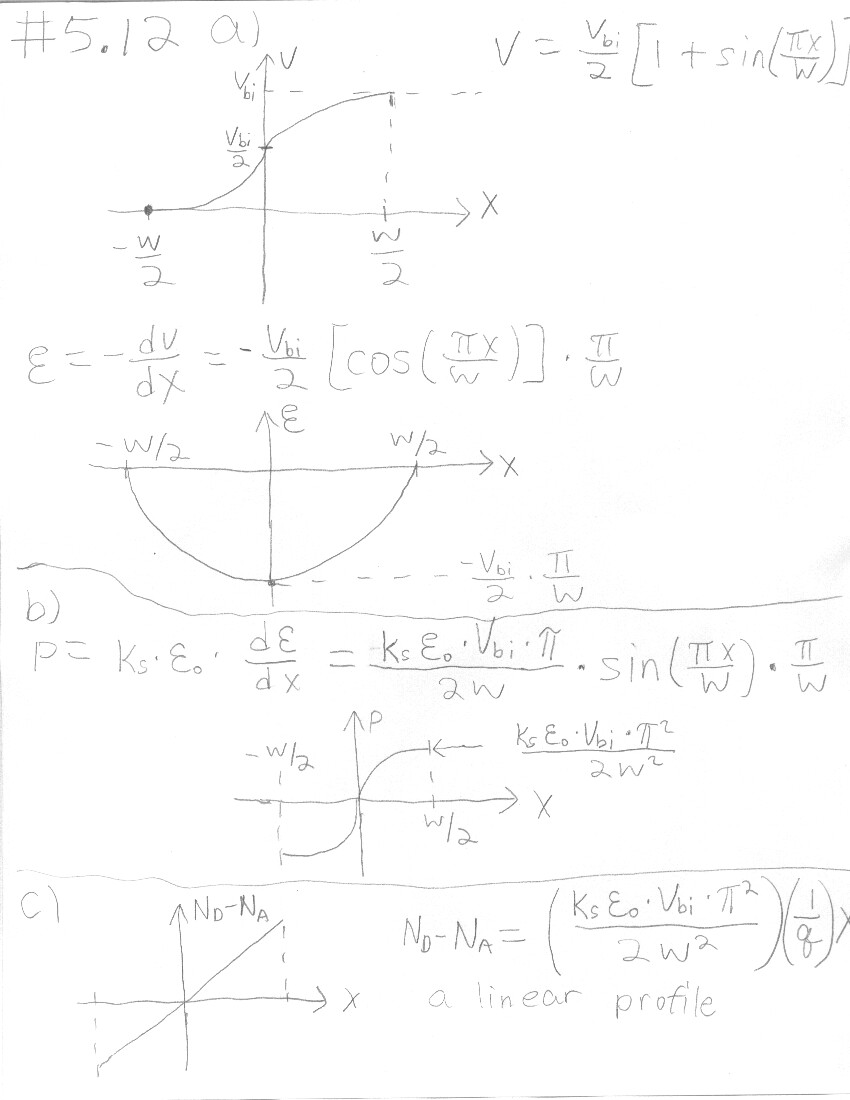 #5.12 a)
V = Vbi/2 [1 + sin(πx/W)]
V
Vbi
Vbi/2
X
-W/2
W/2
ε = -dV/dX = -Vbi/2 [cos(πx/W)] · π/W
ε
-W/2
W/2
X
-Vbi/2 · π/W
b)
P = Ks · ε₀ · dε/dx = Ks ε₀ · Vbi · π/2W · sin(πx/W) · π/W
P
-W/2
Ks ε₀ · Vbi · π²/2W²
W/2
X
c)
ND-NA
ND-NA = (Ks ε₀ · Vbi · π²/2W²)(1/q)X
X
a linear profile